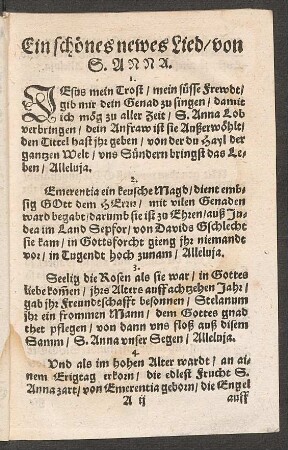 Ein schönes newes Lied/ von
S. ANNA.
1.
JEsus mein Trost / mein süsse Frewdt/
gib mir dein Genad zu singen / damit
ich mög zu aller Zeit / S. Anna Lob
verbringen / dein Anfraw ist sie Außerwöhlt/
den Tittel hast jhr geben / von der du Hayl der
gantzen Welt / vns Sündern bringst das Le-
ben / Alleluja.
2.
Emerentia ein keusche Magd/ dient emb-
sig GOtt dem HErrn/ mit vilen Genaden
ward begabt/ darumb sie ist zu Ehren/ auß Ju-
dea im Land Sepfor/ von Davids Gschlecht
sie kam / in Gottsforcht gieng jhr niemandt
vor/ in Tugendt hoch zunam / Alleluja.
3.
Seelig die Rosen als sie war / in Gottes
liebe kommen / jhrs Alters auff achtzehen Jahr/
gab jhr Freundtschafft besonnen/ Stelanum
jhr ein frommen Mann/ dem Gottes gnad
thet pflegen / von dann vns floß auß disem
Samm/ S. Anna vnser Segen/ Alleluja.
4.
Und als im hohen Alter wardt/ an ai-
nem Erigtag erkorn/ die edlest Frucht S.
Anna zart/ von Emerentia geborn/ die Engel
A ij auff